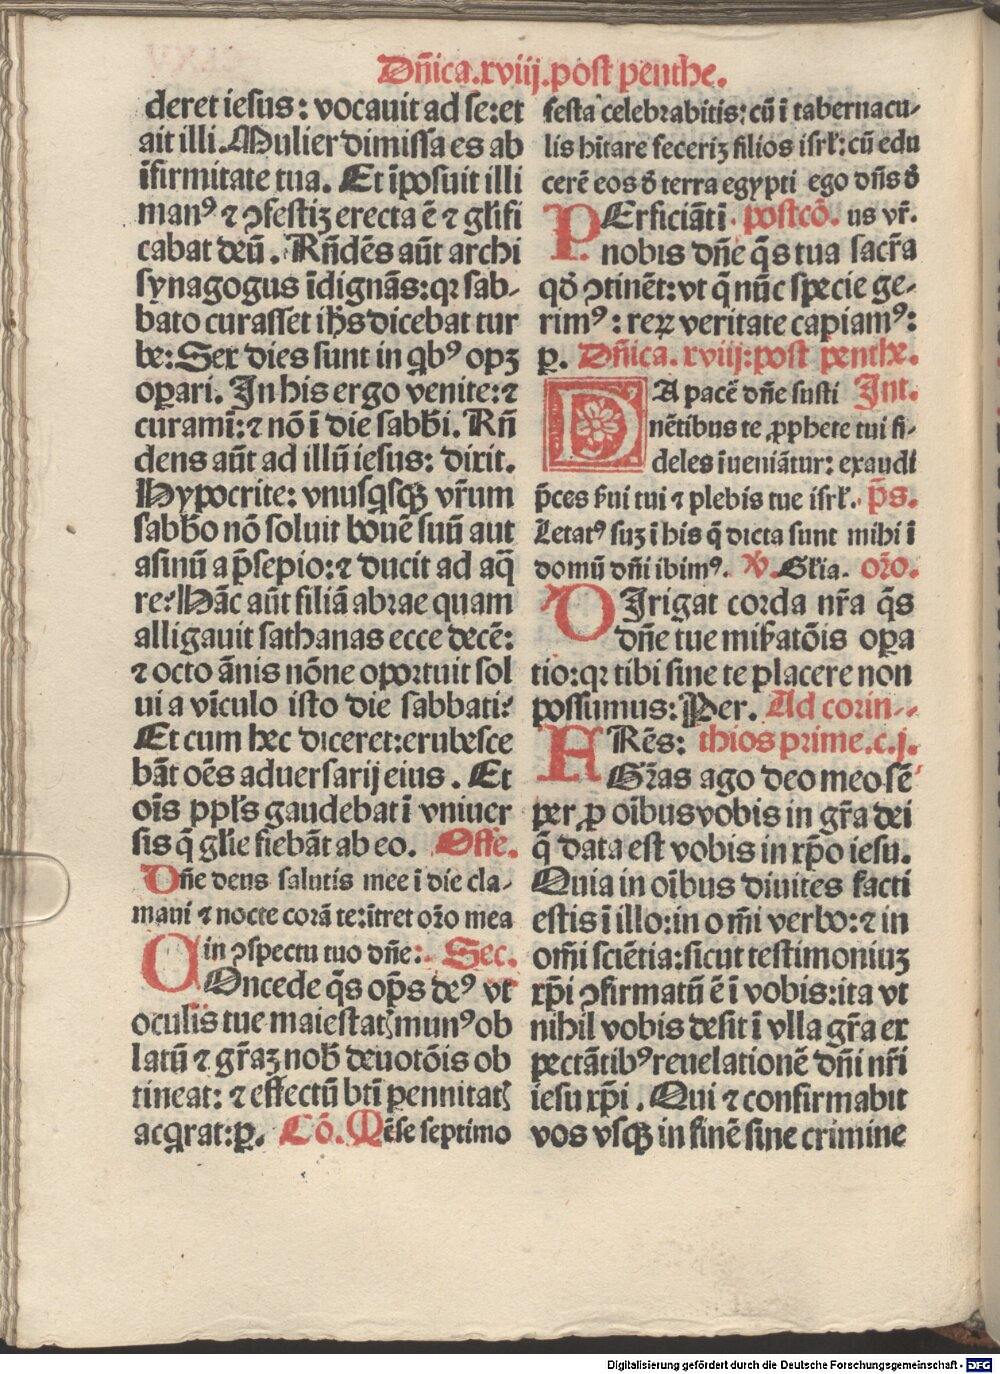 Dñica.xviij.post penthe.
deret iesus: vocauit ad se:et
ait illi.Mulier dimissa es ab
ĩfirmitate tua. Et ĩposuit illi
manꝰ ⁊ ꝯfestiʒ erecta ē ⁊ glꝛifi
cabat deū. Rñdēs aūt archi
synagogus ĩdignās:qꝛ sab-
bato curasset ihs dicebat tur
be:Sex dies sunt in qbꝰ opʒ
oꝑari. In his ergo venite:⁊
curamĩ:⁊ nō ĩ die sabbi. Rñ
dens aūt ad illū iesus: dixit.
Hypocrite: vnusqsqꝫ vrũm
sabbo nō soluit bouē suū aut
asinū a p̄sepio:⁊ ducit ad aq̄
re? Hāc aūt filiā abrae quam
alligauit sathanas ecce decē:
⁊ octo ānis nōne oportuit sol
ui a vĩculo isto die sabbati?
Et cum hec diceret:erubesce
bāt oēs aduersarij eius. Et
oīs ppls gaudebat ĩ vniuer
sis q̄ glĩe fiebāt ab eo. Offe.
Dñe deus salutis mee ĩ die cla-
maui ⁊ nocte corā te:ĩtret oꝛo mea
in ꝯspectu tuo dñe: Sec.
COncede q̄s op̄s deꝰ vt
oculis tue maiestatꝭ munꝰ ob
latū ⁊ gr̄aʒ nob deuotōis ob
tineat: ⁊ effectū btĩ pennitatꝭ
acqrat:ꝑ. Cō. Mēse septimo
festa celebrabitis: cū ĩ tabernacu-
lis hĩtare feceriʒ filios isrl:cū edu
cerē eos đ terra egypti ego dñs đ
PErficiāt ĩ postcō. us vr̄.
nobis dñe q̄s tua sacr̄a
qđ ꝯtinēt:vt q̄ nūc specie ge-
rimꝰ: reꝝ veritate capiamꝰ:
ꝑ. Dñica. xviij:post penthe.
DA pacē dñe susti Int.
nētibus te ꝓphete tui fi-
deles ĩueniātur: exaudi
p̄ces sui tui ⁊ plebis tue isrl. p̄s.
Letatꝰ suʒ ĩ his q̄ dicta sunt mihi ĩ
domū dñi ibimꝰ. ℣. Glĩa. oꝛo.
DIrigat corda nr̄a q̄s
dñe tue misatōis oꝑa
tio:qꝛ tibi sine te placere non
possumus: Per. Ad corin-
FRēs: thios prime.c.j.
Gr̄as ago deo meo sē
per ꝓ oībus vobis in gr̄a dei
q̄ data est vobis in xp̄o iesu.
Quia in oībus diuites facti
estis ĩ illo:in omĩ verbo:⁊ in
omĩ sciētia:sicut testimoniuʒ
xp̄i ꝯfirmatū ē ĩ vobis:ita vt
nihil vobis desit ĩ vlla gr̄a ex
pectātibꝰ reuelationē dñi nr̄i
iesu xp̄i. Qui ⁊ confirmabit
vos vsqꝫ in finē sine crimine
Digitalisierung gefördert durch die Deutsche Forschungsgemeinschaft - DFG